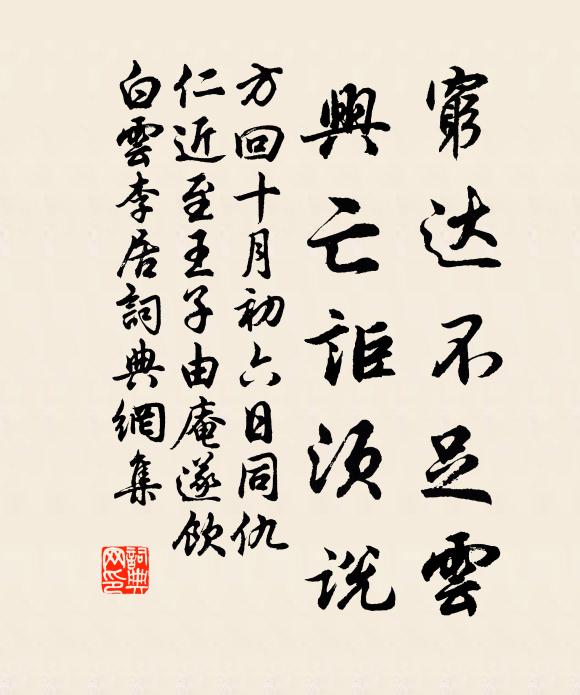 窮达不足雲
興亡詎須説
方回十月初六日同仇
仁近至王子由庵遂飲
白雲李居詞典網集
詞典
网印